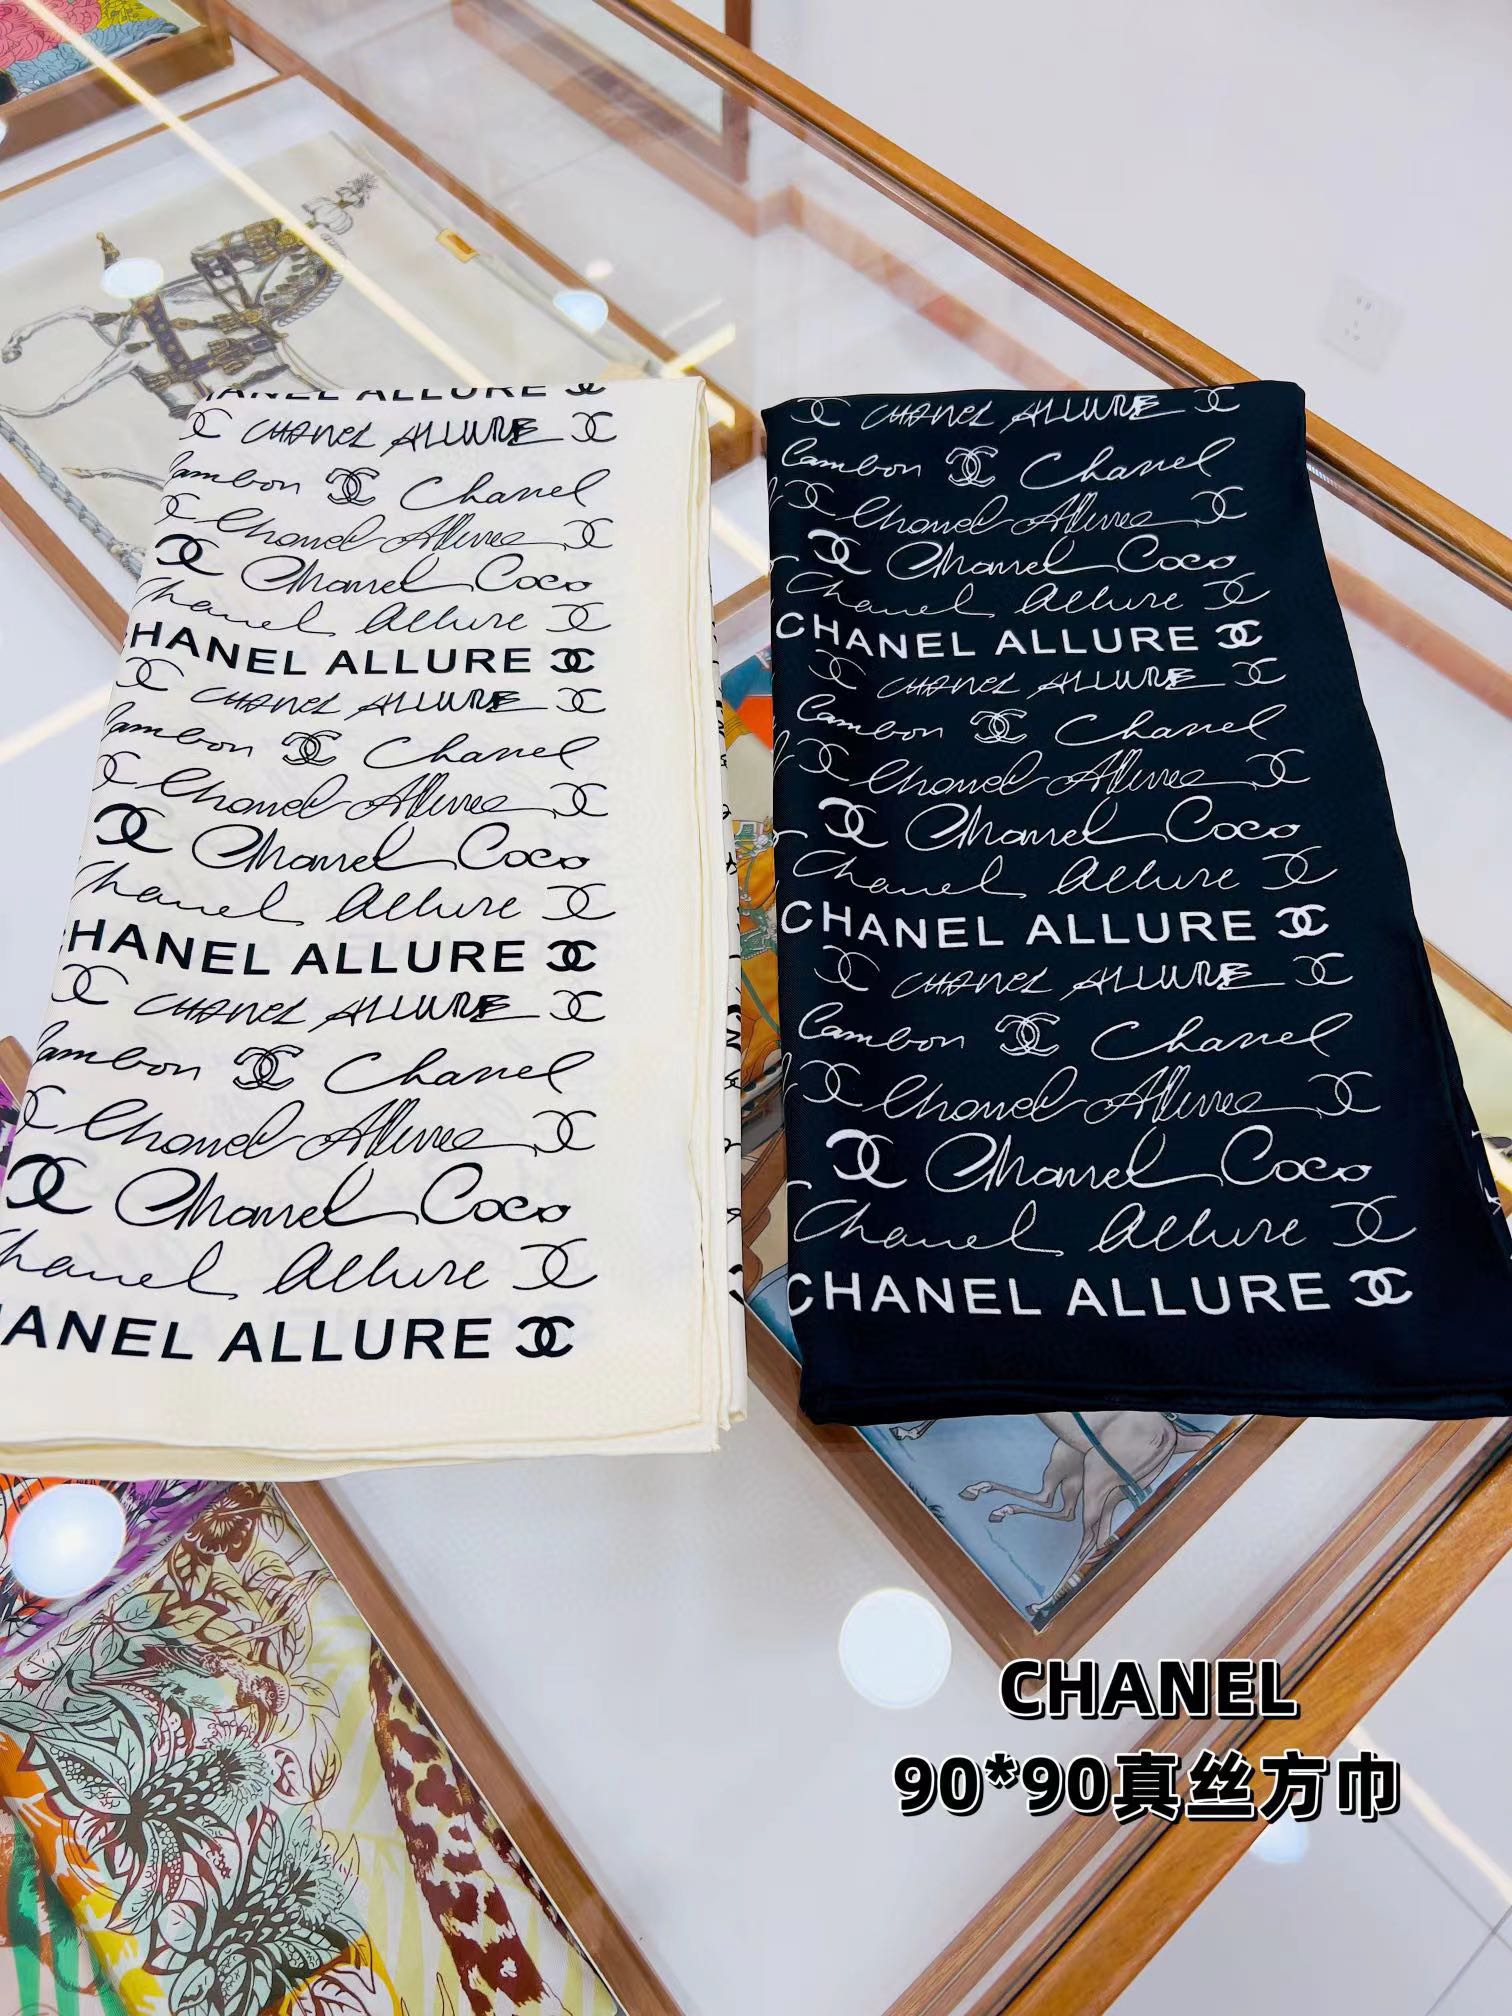 ANEL ALLURE
CHANEL ALLURE
ambon Chanel
Chanel Allure
Chanel Coco
hanel Allure
HANEL ALLURE
CHANEL ALLURE
ambon Chanel
Chanel Allure
Chanel Coco
hanel Allure
HANEL ALLURE
CHANEL ALLURE
ambon Chanel
Chanel Allure
Chanel Coco
hanel Allure
ANEL ALLURE
CHANEL ALLURE
Cambon Chanel
Chanel Allure
Chanel Coco
Chanel Allure
CHANEL ALLURE
CHANEL ALLURE
Cambon Chanel
Chanel Allure
Chanel Coco
Chanel Allure
CHANEL ALLURE
CHANEL ALLURE
Cambon Chanel
Chanel Allure
Chanel Coco
Chanel Allure
CHANEL ALLURE
CHANEL
90*90真丝方巾